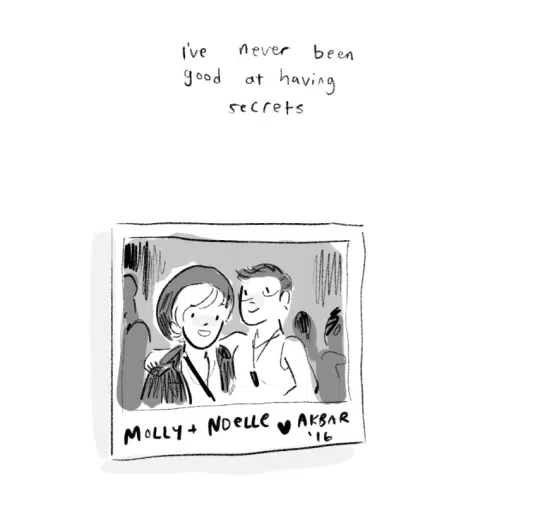 I've never been
good at having
secrets
MOLLY + NOELLE ♥ AKBAR
'16